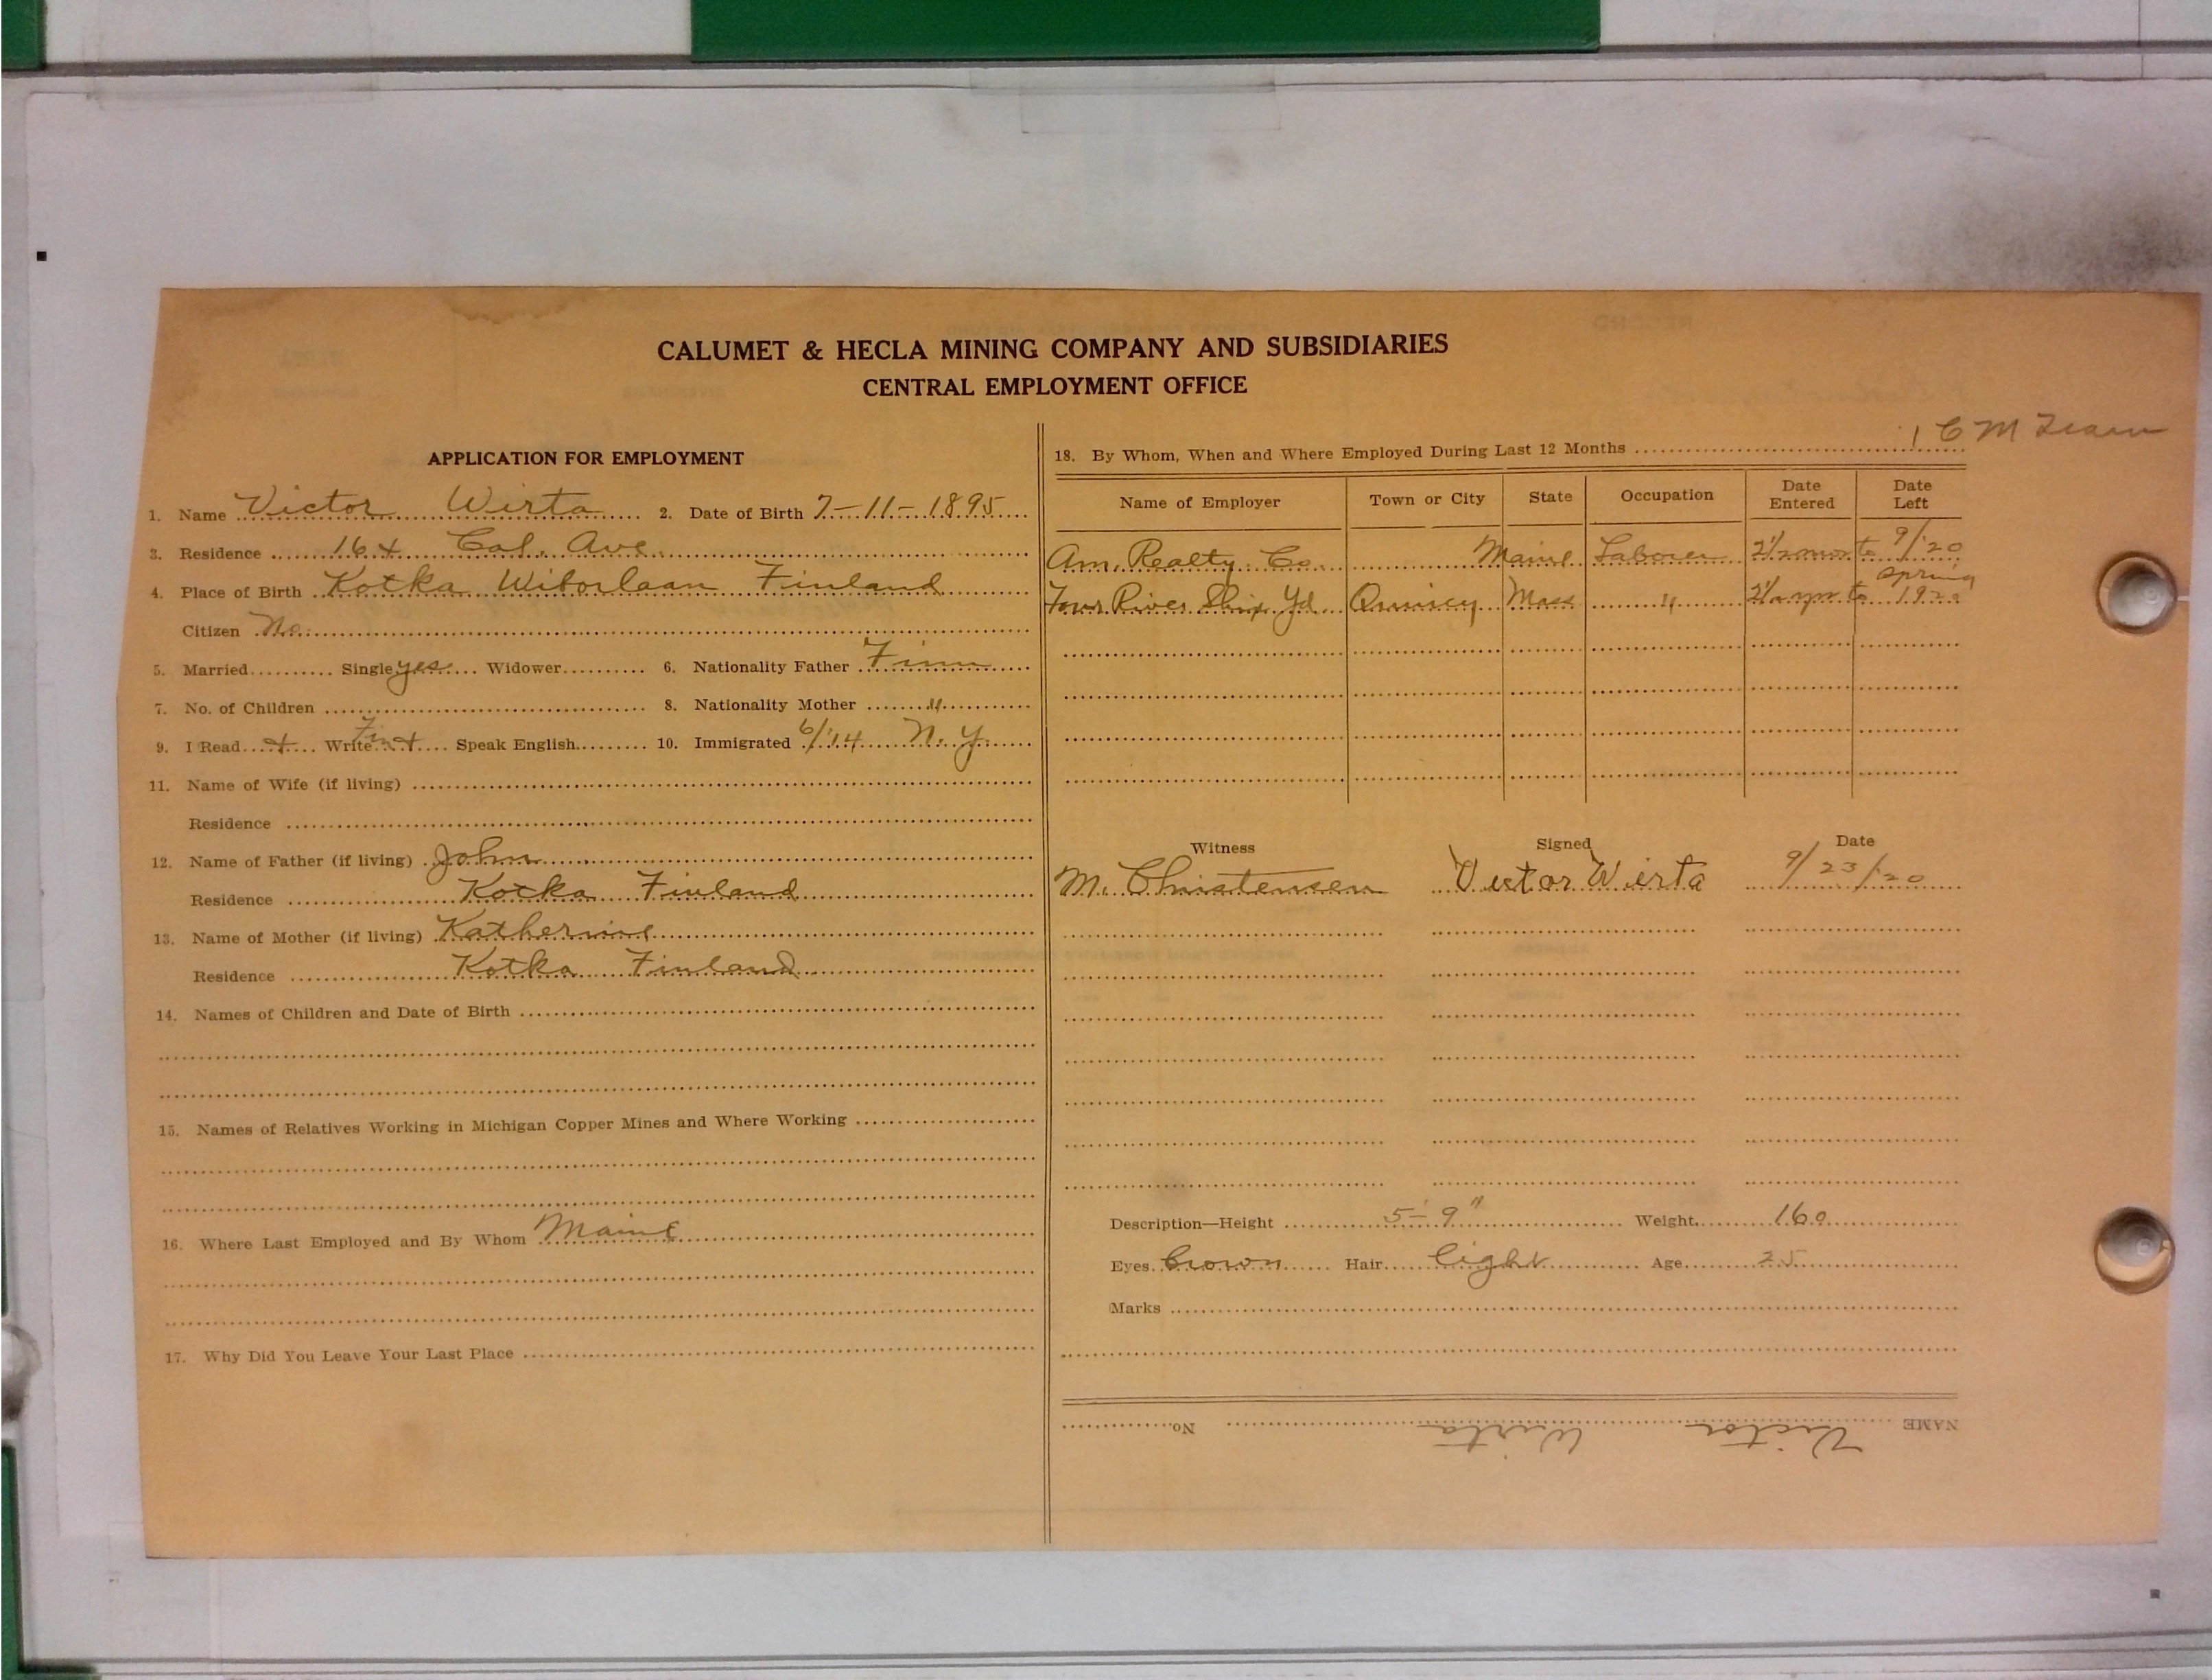 CALUMET & HECLA MINING COMPANY AND SUBSIDIARIES
CENTRAL EMPLOYMENT OFFICE
APPLICATION FOR EMPLOYMENT
1. Name Victor Wirta 2. Date of Birth 7-11-1895
3. Residence Cal. Ave.
4. Place of Birth Kotka Wiborlaan Finland
Citizen No.
5. Married Single yes Widower 6. Nationality Father Finn
7. No. of Children 8. Nationality Mother "
9. I Read + Write Fin + Speak English 10. Immigrated 6/'14 N.Y.
11. Name of Wife (if living)
Residence
12. Name of Father (if living) John
Residence Kotka Finland
13. Name of Mother (if living) Katherine
Residence Kotka Finland
14. Names of Children and Date of Birth
15. Names of Relatives Working in Michigan Copper Mines and Where Working
16. Where Last Employed and By Whom Maine
17. Why Did You Leave Your Last Place
C M
18. By Whom, When and Where Employed During Last 12 Months
Name of Employer Town or City State Occupation Date Entered Date Left
Am. Realty Co. Maine Laborer 2 1/2 mos to 9/'20
Four River Ship Yd Quincy Mass " 2 1/2 yrs to Spring 1920
Witness Signed Date
M. Christensen Victor Wirta 9/23/'20
Description—Height 5-9" Weight 160
Eyes brown Hair light Age 25
Marks
NAME Victor Wirta No.